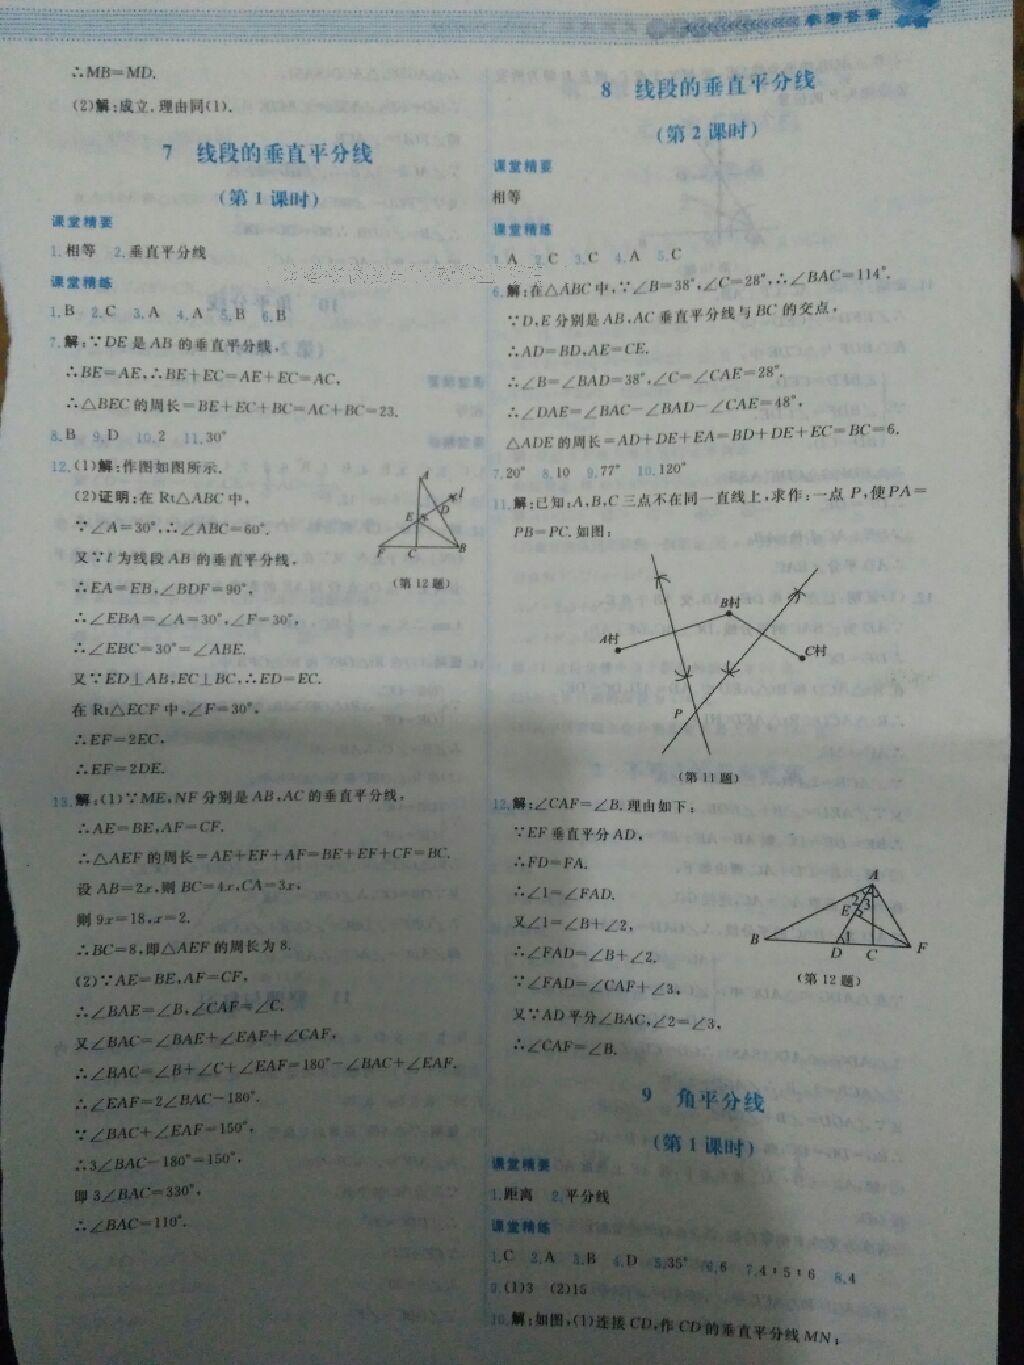 参考答案
∴MB=MD.
(2)解:成立.理由同(1).
7 线段的垂直平分线
(第1课时)
课堂精要
1.相等 2.垂直平分线
课堂精练
1.B 2.C 3.A 4.A 5.B 6.B
7.解:∵DE是AB的垂直平分线,
∴BE=AE,∴BE+EC=AE+EC=AC,
∴△BEC的周长=BE+EC+BC=AC+BC=23.
8.B 9.D 10.2 11.30°
12.(1)解:作图如图所示.
(2)证明:在Rt△ABC中,
∵∠A=30°,∴∠ABC=60°.
又∵l为线段AB的垂直平分线,
∴EA=EB,∠BDF=90°,
∴∠EBA=∠A=30°,∠F=30°,
∴∠EBC=30°=∠ABE.
又∵ED⊥AB,EC⊥BC,∴ED=EC.
在Rt△ECF中,∠F=30°,
∴EF=2EC,
∴EF=2DE.
A
l
D
E
F C B
(第12题)
13.解:(1)∵ME,NF分别是AB,AC的垂直平分线,
∴AE=BE,AF=CF.
∴△AEF的周长=AE+EF+AF=BE+EF+CF=BC.
设AB=2x,则BC=4x,CA=3x,
则9x=18,x=2.
∴BC=8,即△AEF的周长为8.
(2)∵AE=BE,AF=CF,
∴∠BAE=∠B,∠CAF=∠C.
又∠BAC=∠BAE+∠EAF+∠CAF,
∴∠BAC=∠B+∠C+∠EAF=180°-∠BAC+∠EAF.
∴∠EAF=2∠BAC-180°.
∵∠BAC+∠EAF=150°,
∴3∠BAC-180°=150°,
即3∠BAC=330°,
∴∠BAC=110°.
8 线段的垂直平分线
(第2课时)
课堂精要
相等
课堂精练
1.A 2.C 3.C 4.A 5.C
6.解:在△ABC中,∵∠B=38°,∠C=28°,∴∠BAC=114°.
∵D,E分别是AB,AC垂直平分线与BC的交点,
∴AD=BD,AE=CE.
∴∠B=∠BAD=38°,∠C=∠CAE=28°,
∴∠DAE=∠BAC-∠BAD-∠CAE=48°,
△ADE的周长=AD+DE+EA=BD+DE+EC=BC=6.
7.20° 8.10 9.77° 10.120°
11.解:已知:A,B,C三点不在同一直线上,求作:一点P,使PA=
PB=PC.如图:
B村
A村
C村
P
(第11题)
12.解:∠CAF=∠B.理由如下:
∵EF垂直平分AD,
∴FD=FA.
∴∠1=∠FAD.
又∠1=∠B+∠2,
∴∠FAD=∠B+∠2.
∵∠FAD=∠CAF+∠3,
又∵AD平分∠BAC,∠2=∠3,
∴∠CAF=∠B.
A
2 3
E
B 1 F
D C
(第12题)
9 角平分线
(第1课时)
课堂精要
1.距离 2.平分线
课堂精练
1.C 2.A 3.B 4.D 5.35° 6.6 7.4∶5∶6 8.4
9.(1)3 (2)15
10.解:如图,(1)连接CD,作CD的垂直平分线MN;